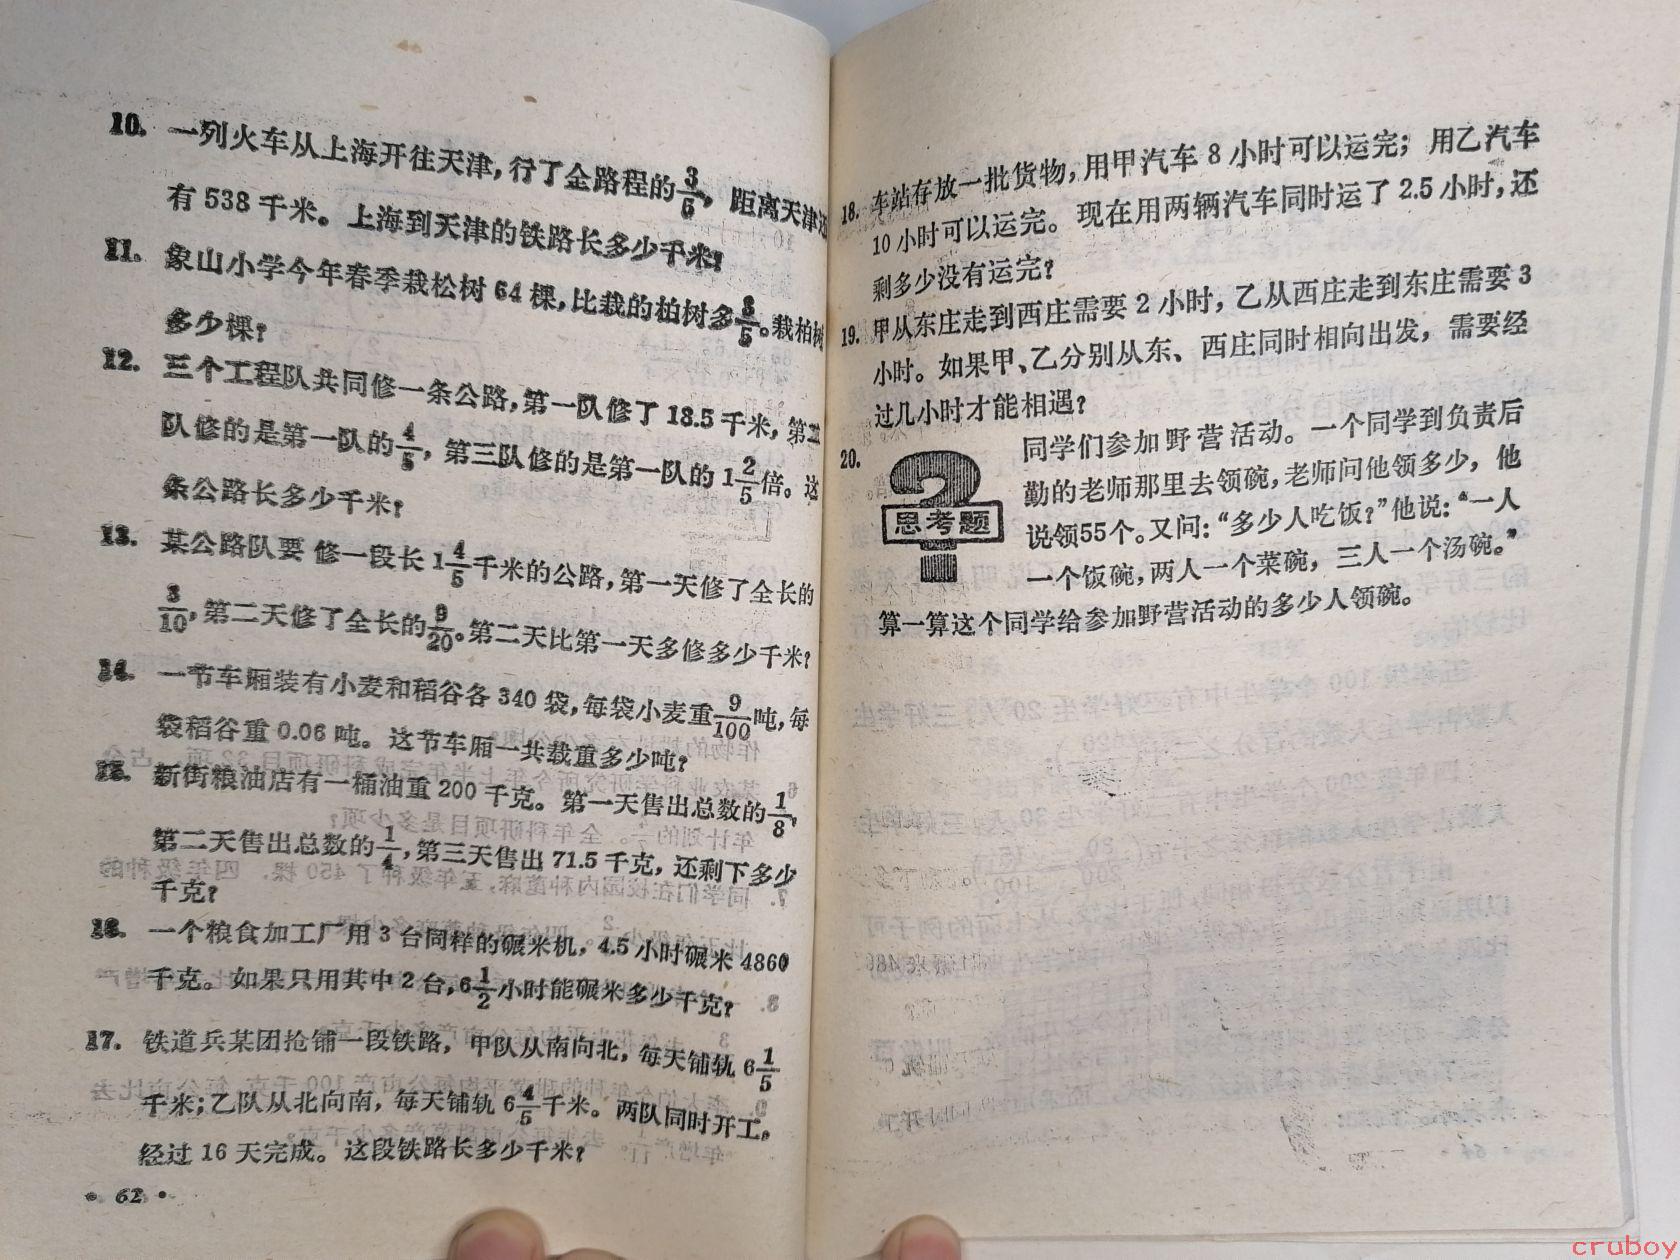 10. 一列火车从上海开往天津，行了全路程的3/5，距离天津还
有 538 千米。上海到天津的铁路长多少千米？
11. 象山小学今年春季栽松树 64 棵，比栽的柏树多3/5。栽柏树
多少棵？
12. 三个工程队共同修一条公路，第一队修了 18.5 千米，第二
队修的是第一队的4/5，第三队修的是第一队的 1 2/5倍。这
条公路长多少千米？
13. 某公路队要 修一段长 1 4/5千米的公路，第一天修了全长的
3/10，第二天修了全长的9/20。第二天比第一天多修多少千米？
14. 一节车厢装有小麦和稻谷各 340 袋，每袋小麦重9/100吨，每
袋稻谷重 0.06 吨。这节车厢一共载重多少吨？
15. 新街粮油店有一桶油重 200 千克。第一天售出总数的1/8，
第二天售出总数的1/4，第三天售出 71.5 千克，还剩下多少
千克？
16. 一个粮食加工厂用 3 台同样的碾米机，4.5 小时碾米 4860
千克。如果只用其中 2 台，6 1/2小时能碾米多少千克？
17. 铁道兵某团抢铺一段铁路，甲队从南向北，每天铺轨 6 1/5
千米；乙队从北向南，每天铺轨 6 4/5千米。两队同时开工。
经过 16 天完成。这段铁路长多少千米？
• 62 •
18. 车站存放一批货物，用甲汽车 8 小时可以运完；用乙汽车
10 小时可以运完。现在用两辆汽车同时运了 2.5 小时，还
剩多少没有运完？
19. 甲从东庄走到西庄需要 2 小时，乙从西庄走到东庄需要 3
小时。如果甲、乙分别从东、西庄同时相向出发，需要经
过几小时才能相遇？
20. 思考题
同学们参加野营活动。一个同学到负责后
勤的老师那里去领碗，老师问他领多少，他
说领55个。又问：“多少人吃饭？”他说：“一人
一个饭碗，两人一个菜碗，三人一个汤碗。”
算一算这个同学给参加野营活动的多少人领碗。
cruboy